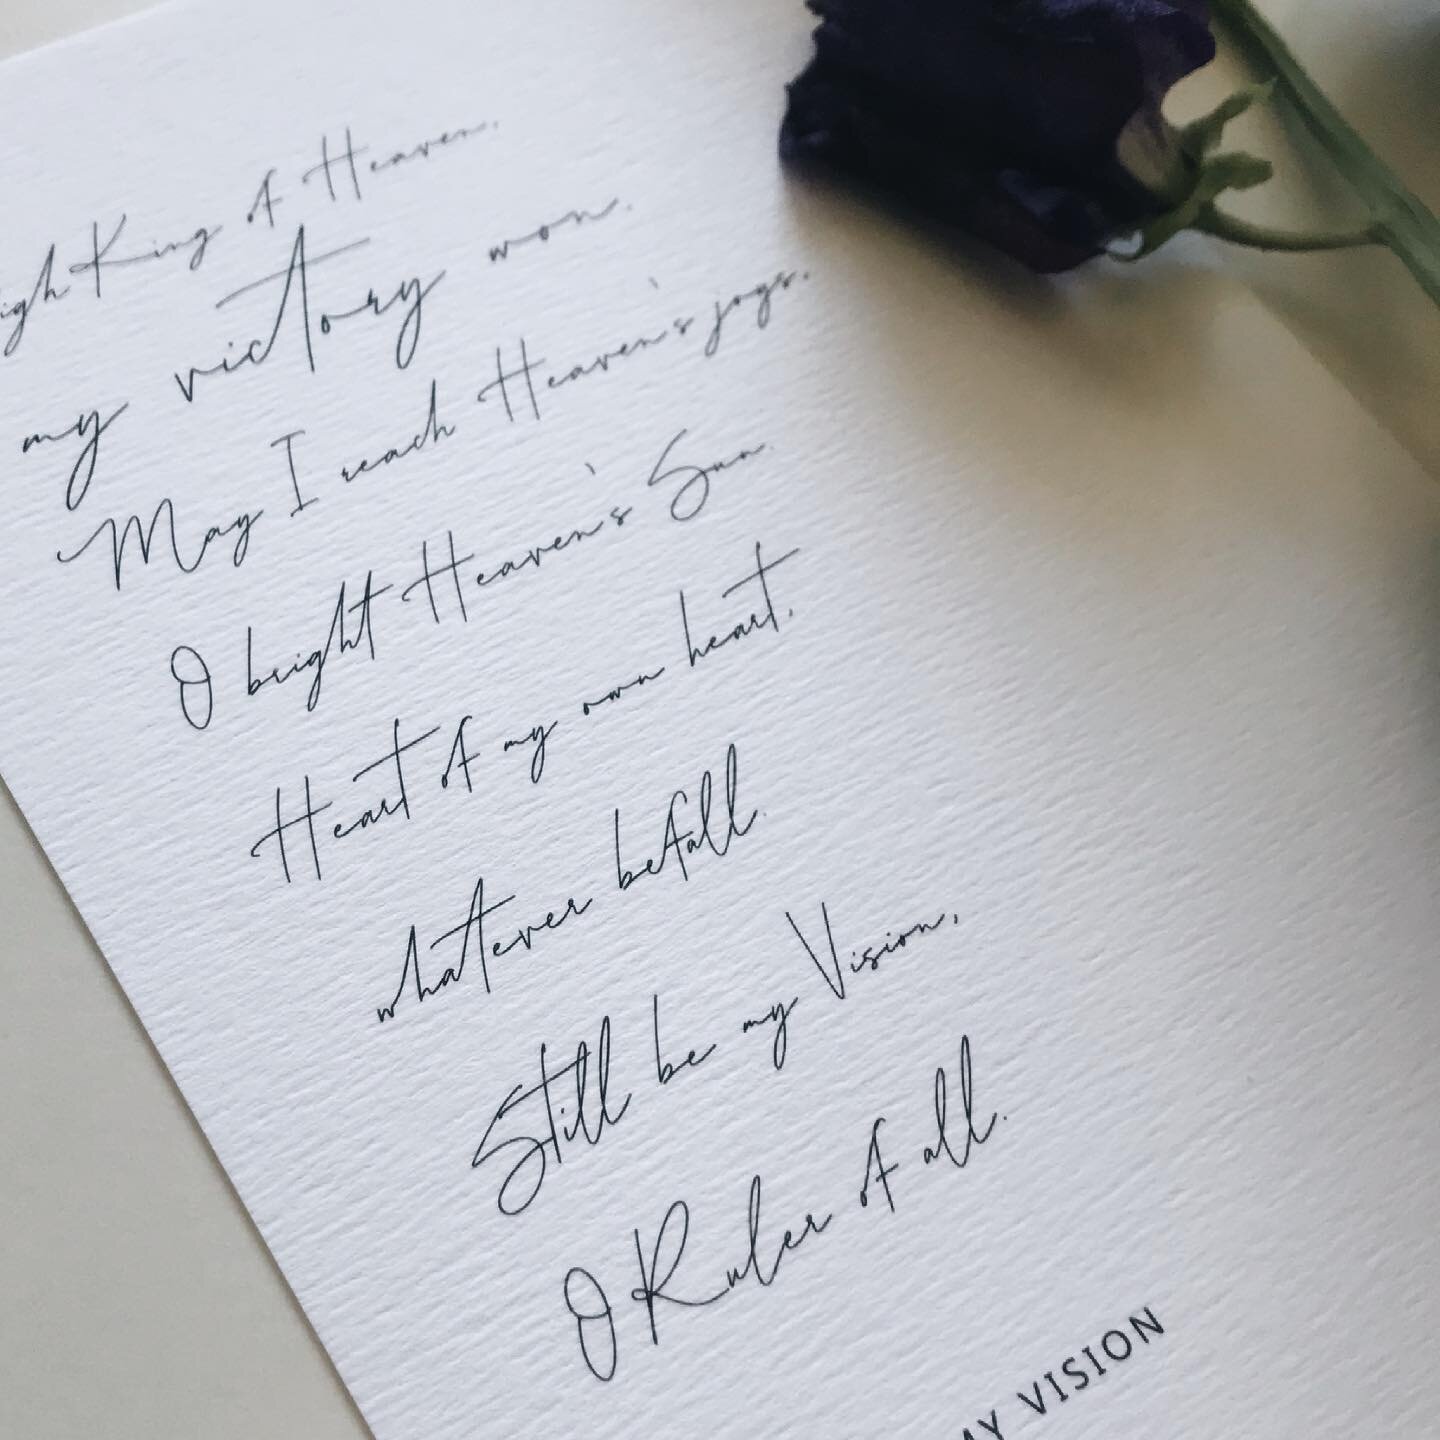 igh King of Heaven,
my victory won.
May I reach Heaven's joys,
O bright Heaven's Sun.
Heart of my own heart,
whatever befall.
Still be my Vision,
O Ruler of all.
MY VISION